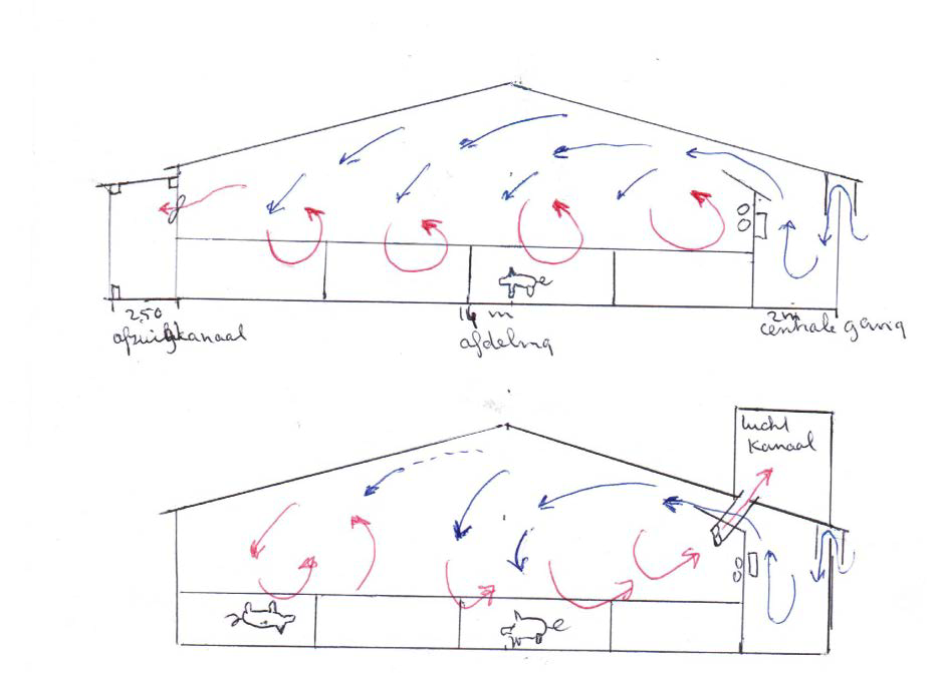 2,50
afzuigkanaal
14 m
afdeling
2m
centrale gang
lucht
kanaal